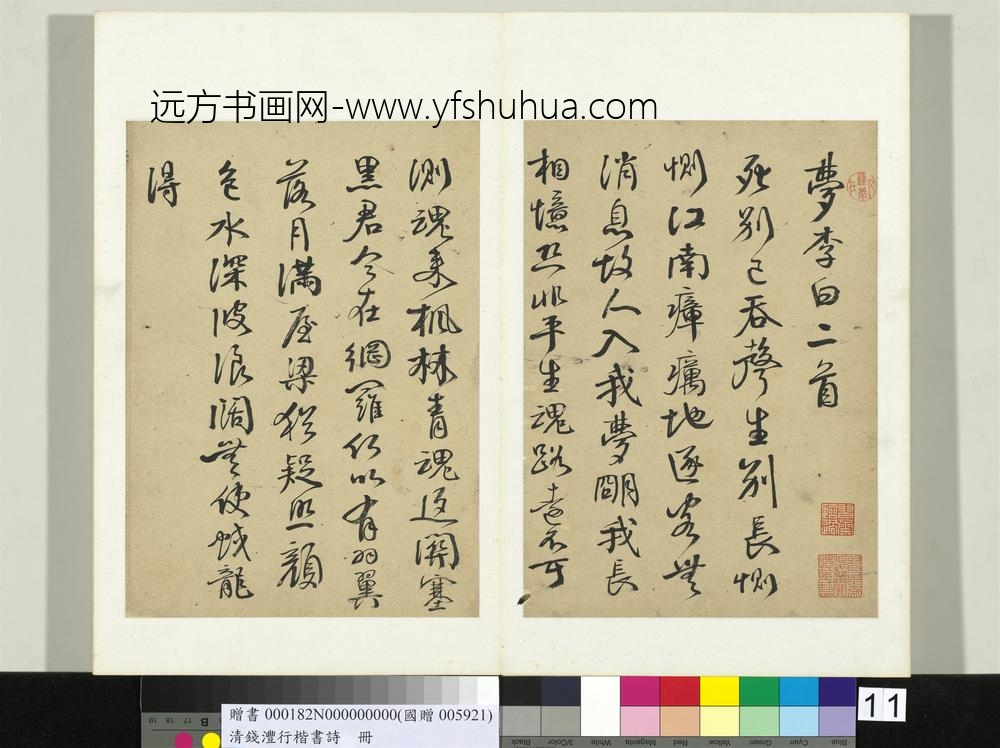 远方书画网-www.yfshuhua.com
夢李白二首
死別已吞聲生別長惻
惻江南瘴癘地逐客無
消息故人入我夢明我長
相憶恐非平生魂路遠不可
測魂來楓林青魂返關塞
黑君今在網羅何以有羽翼
落月滿屋梁猶疑照顏
色水深波浪闊無使蛟龍
得
贈書 000182N000000000(國贈 005921)
清錢灃行楷書詩 冊
11
Blue Cyan Green Yellow Red Magenta White 3/Color Black
B 17 18 19